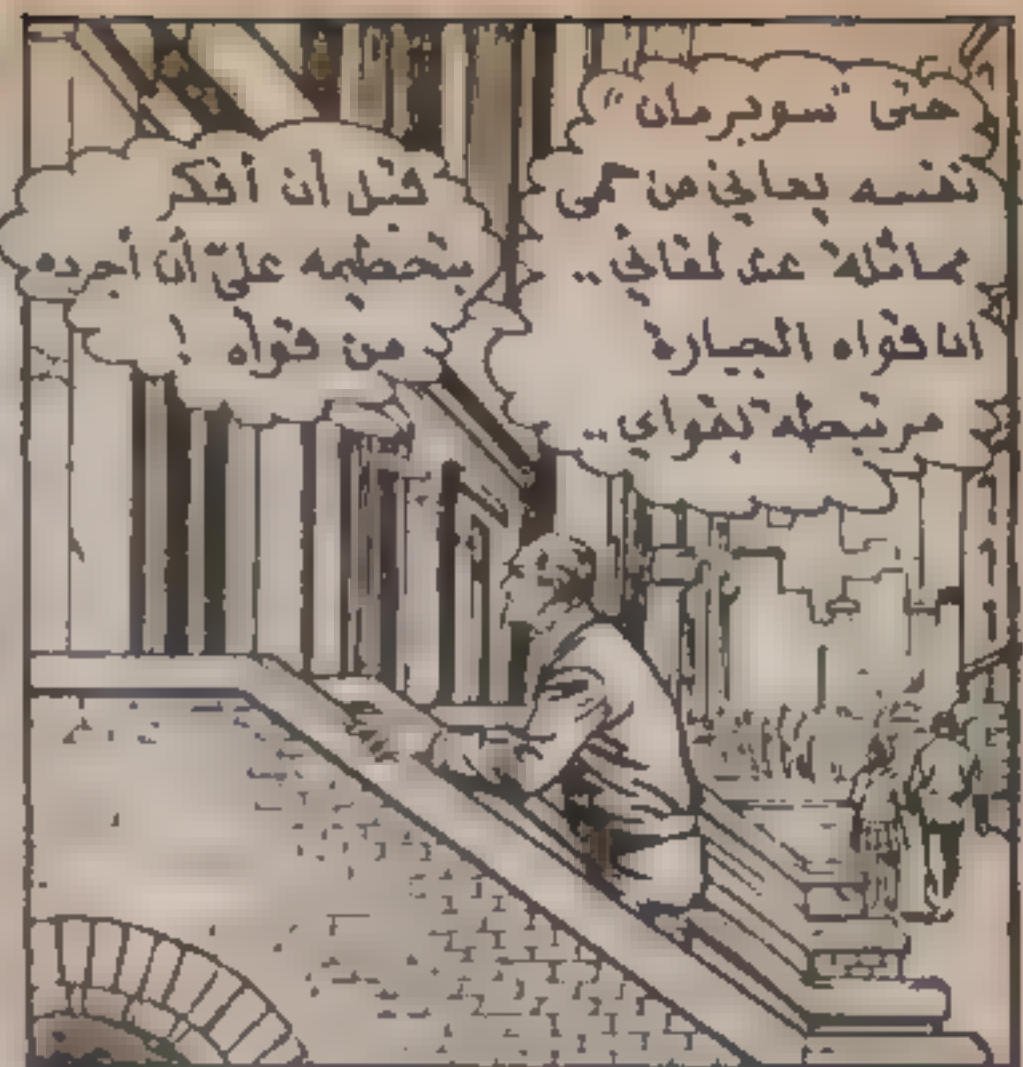 حتى "سوبرمان"
نفسه يعاني من حمى
مماثلة عند لقائي ..
قواه الجبارة
مرتبطة بقواي ..
قبل أن أفكر
بتحطيمه عليّ أن أجرده
من قواه !